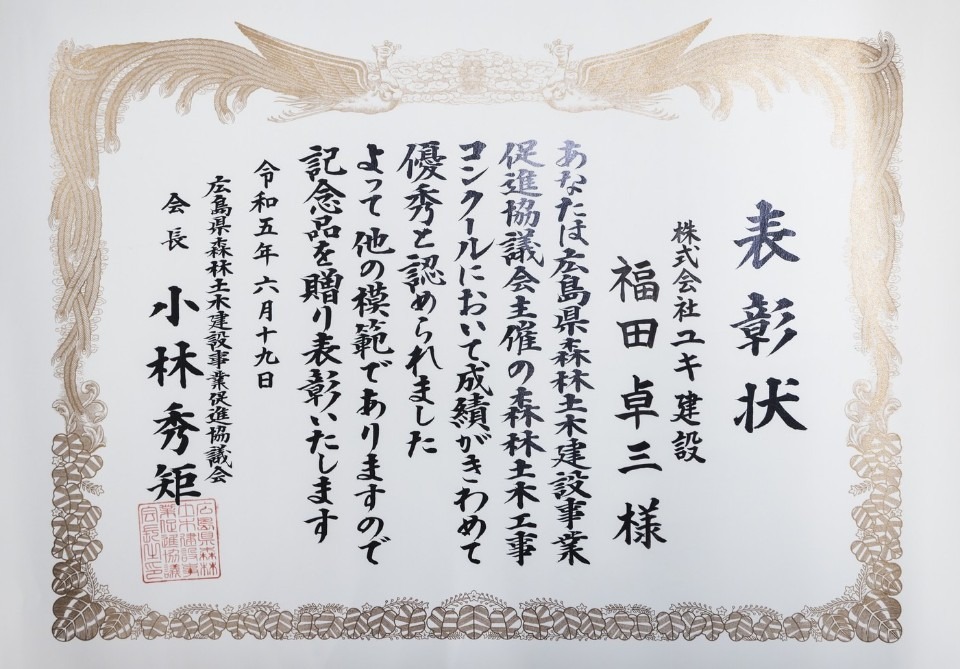 表彰状
株式会社ユキ建設
福田卓三様
あなたは広島県森林土木建設事業
促進協議会主催の森林土木工事
コンクールにおいて成績がきわめて
優秀と認められました
よって他の模範でありますので
記念品を贈り表彰いたします
令和五年六月十九日
広島県森林土木建設事業促進協議会
会長 小林秀矩
広島県森林
土木建設事
業促進協議
会長之印